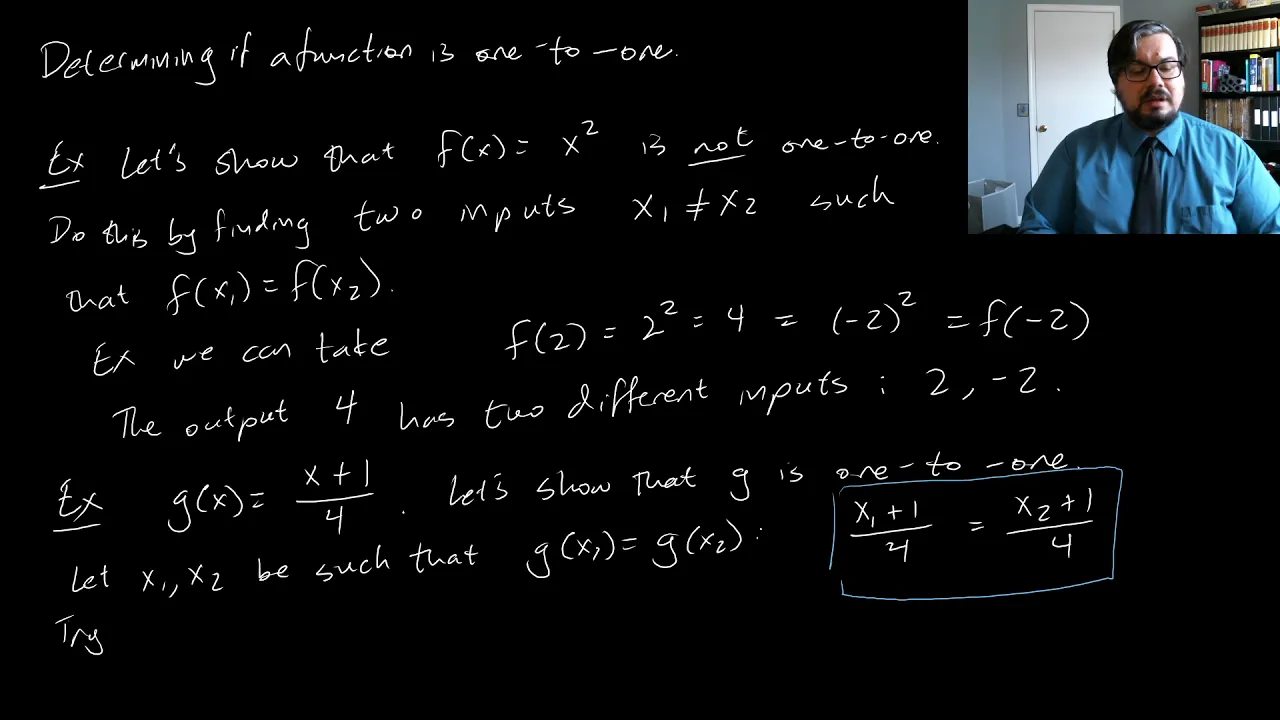 Determining if a function is one-to-one.
Ex Let's show that f(x) = x² is not one-to-one.
Do this by finding two inputs x₁ ≠ x₂ such
that f(x₁) = f(x₂).
Ex we can take f(2) = 2² = 4 = (-2)² = f(-2)
The output 4 has two different inputs : 2, -2.
Ex g(x) = (x+1)/4 . Let's show that g is one-to-one.
Let x₁, x₂ be such that g(x₁) = g(x₂) : (x₁+1)/4 = (x₂+1)/4
Try